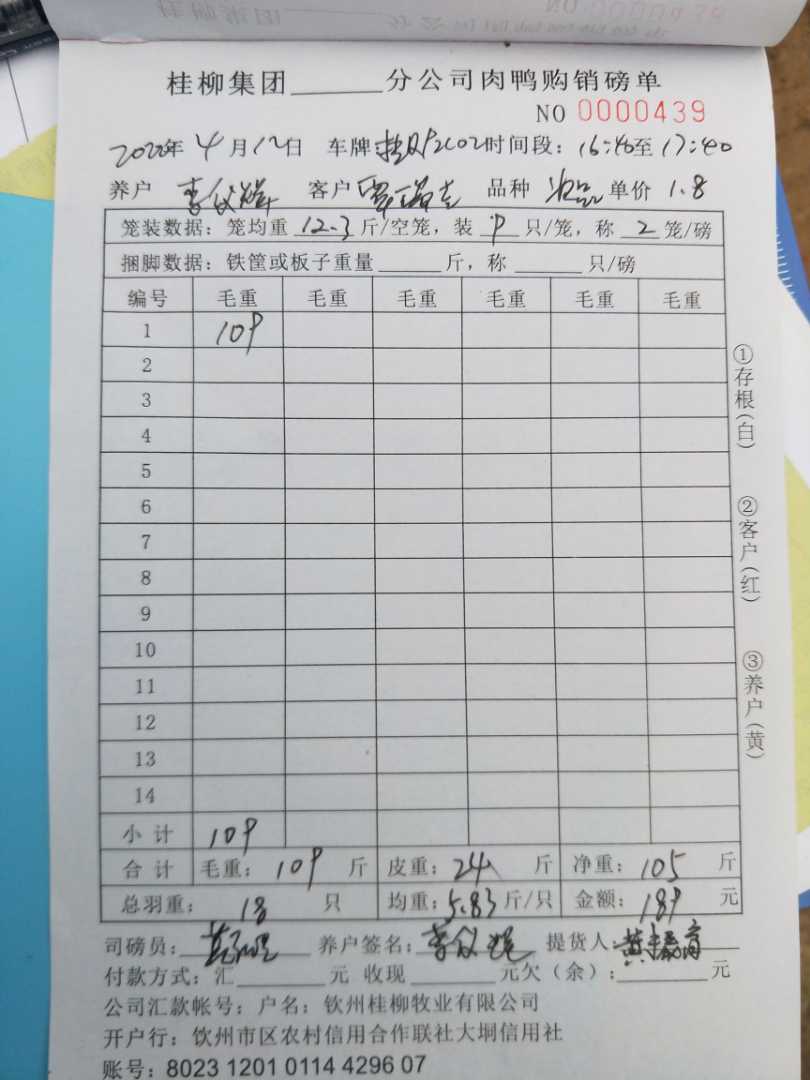 桂柳集团______分公司肉鸭购销磅单
NO 0000439
2022年4月12日 车牌 2C02 时间段：16:40至17:40
养户 李 客户 覃 品种 单价 1.8
笼装数据：笼均重 12.3 斤/空笼，装 9 只/笼，称 2 笼/磅
捆脚数据：铁筐或板子重量______斤，称______只/磅
编号 毛重 毛重 毛重 毛重 毛重 毛重
1 109
2
3
4
5
6
7
8
9
10
11
12
13
14
小计 109
合计 毛重：109 斤 皮重：24 斤 净重：105 斤
总羽重：18 只 均重：5.83 斤/只 金额：189 元
司磅员： 养户签名：李 提货人：黄
付款方式：汇______元 收现______元欠（余）：______元
公司汇款帐号：户名：钦州桂柳牧业有限公司
开户行：钦州市区农村信用合作联社大垌信用社
账号：8023 1201 0114 4296 07
①存根（白）
②客户（红）
③养户（黄）